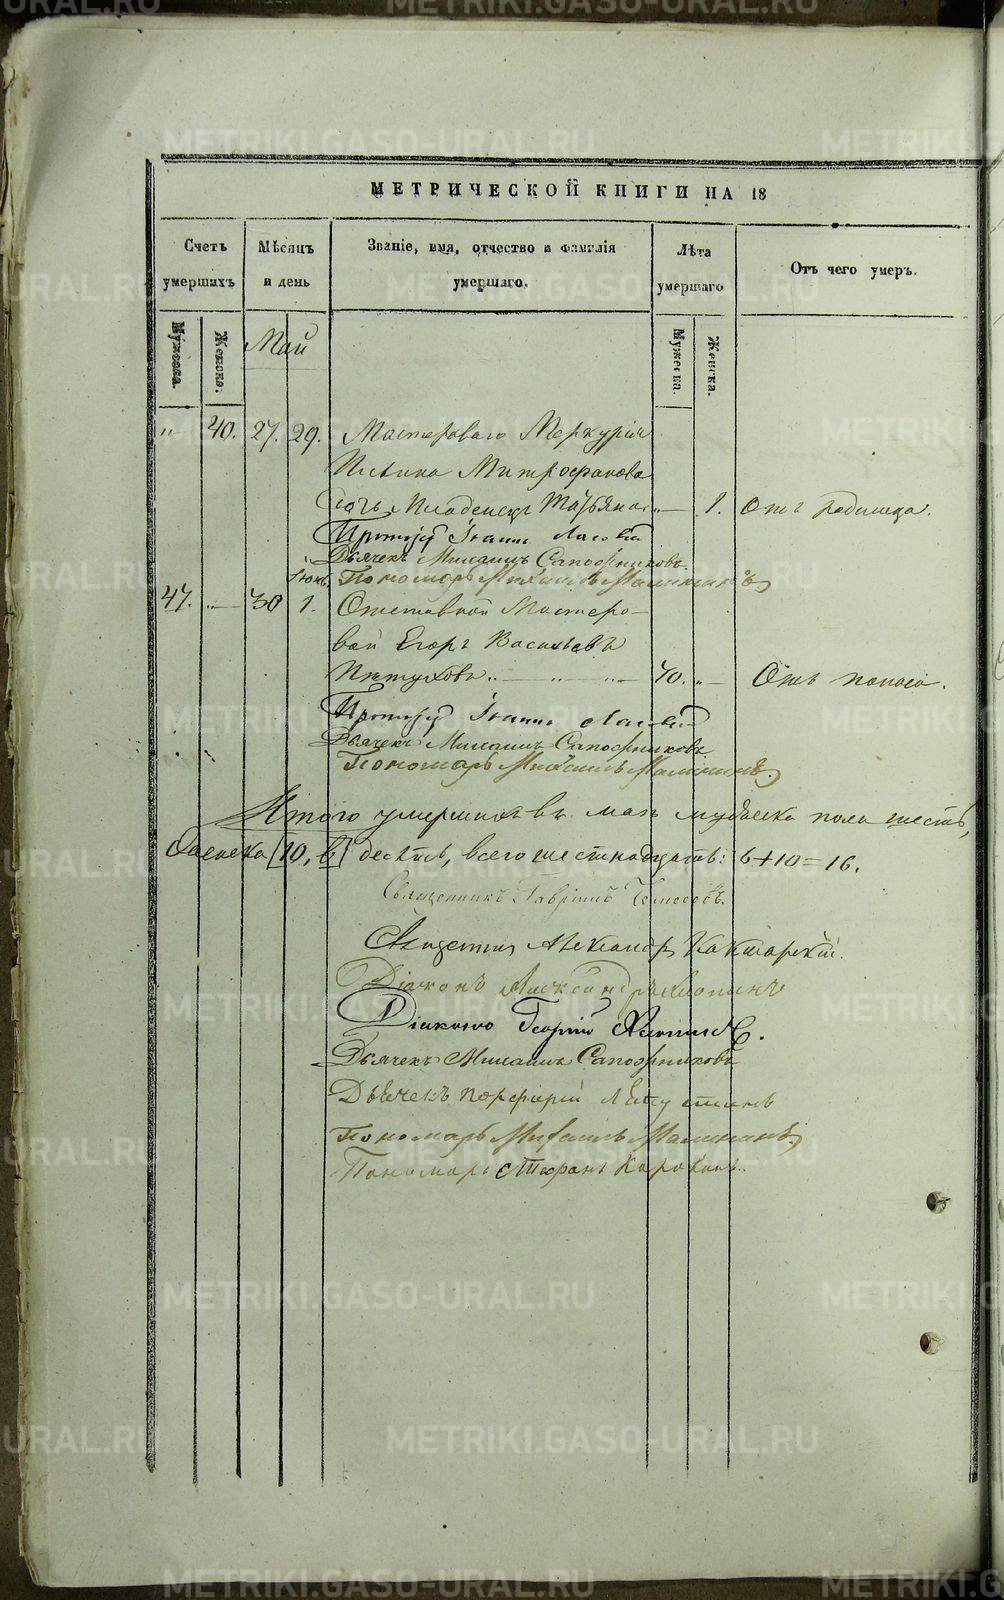 МЕТРИЧЕСКОЙ КНИГИ НА 18
Счетъ умершихъ
Мужеска.
Женска.
Мѣсяцъ и день
Званіе, имя, отчество и фамилія умершаго.
Лѣта умершаго
Мужеска.
Женска.
Отъ чего умеръ.
Май
" 40. 27. 29. Мастероваго Меркурія
Митрофанова
дочь младенецъ Татьяна " 1. Отъ родимца.
Протоіерей Іоаннъ
Дьячекъ Михаилъ Сапожниковъ
Іюнь. Пономарь Михаилъ Малининъ
47. " 30 1. Отставной Мастеро-
вой Егоръ Васильевъ
Пѣтуховъ " " " 70. " Отъ поноса.
Протоіерей Іоаннъ
Дьячекъ Михаилъ Сапожниковъ
Пономарь Михаилъ Малининъ.
Итого умершихъ въ маѣ мужеска пола шесть,
женска десять, всего шестнадцать: 6+10=16.
Священникъ Гавріилъ
Священникъ Александръ
Діаконъ Александръ
Діаконъ Георгій
Дьячекъ Михаилъ Сапожниковъ
Дьячекъ Порфирій
Пономарь Михаилъ Малининъ.
Пономарь Стефанъ Коровинъ.
METRIKI.GASO-URAL.RU